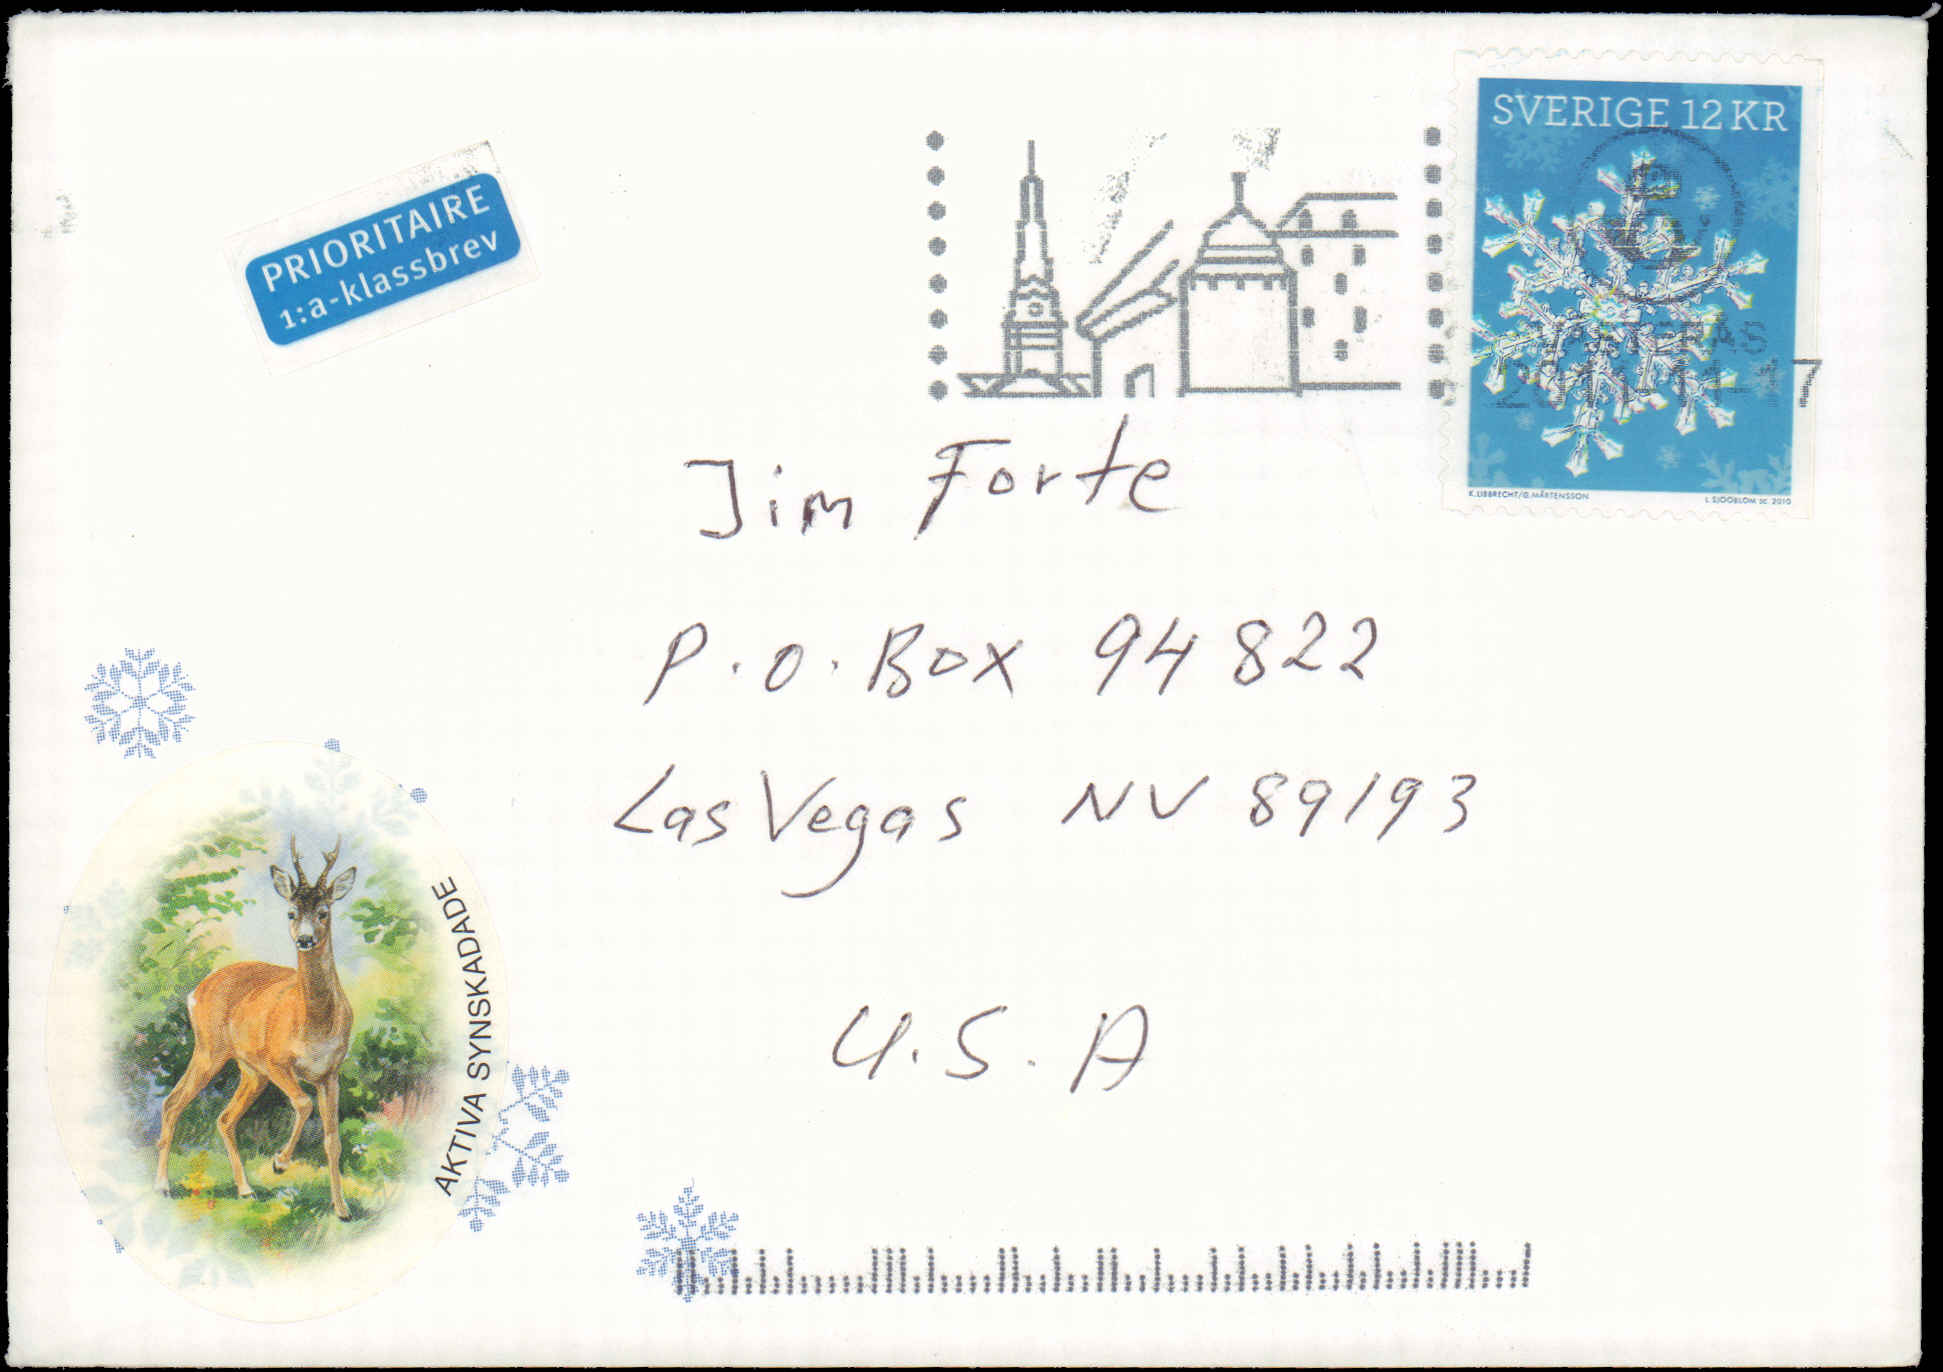 SVERIGE 12 KR
PRIORITAIRE
1:a-klassbrev
VÄSTERÅS
2011-11-17
K.LIBBRECHT/G.MÅRTENSSON
L SJÖÖBLOM SC. 2010
Jim Forte
P.O. Box 94822
Las Vegas NV 89193
U.S.A
AKTIVA SYNSKADADE